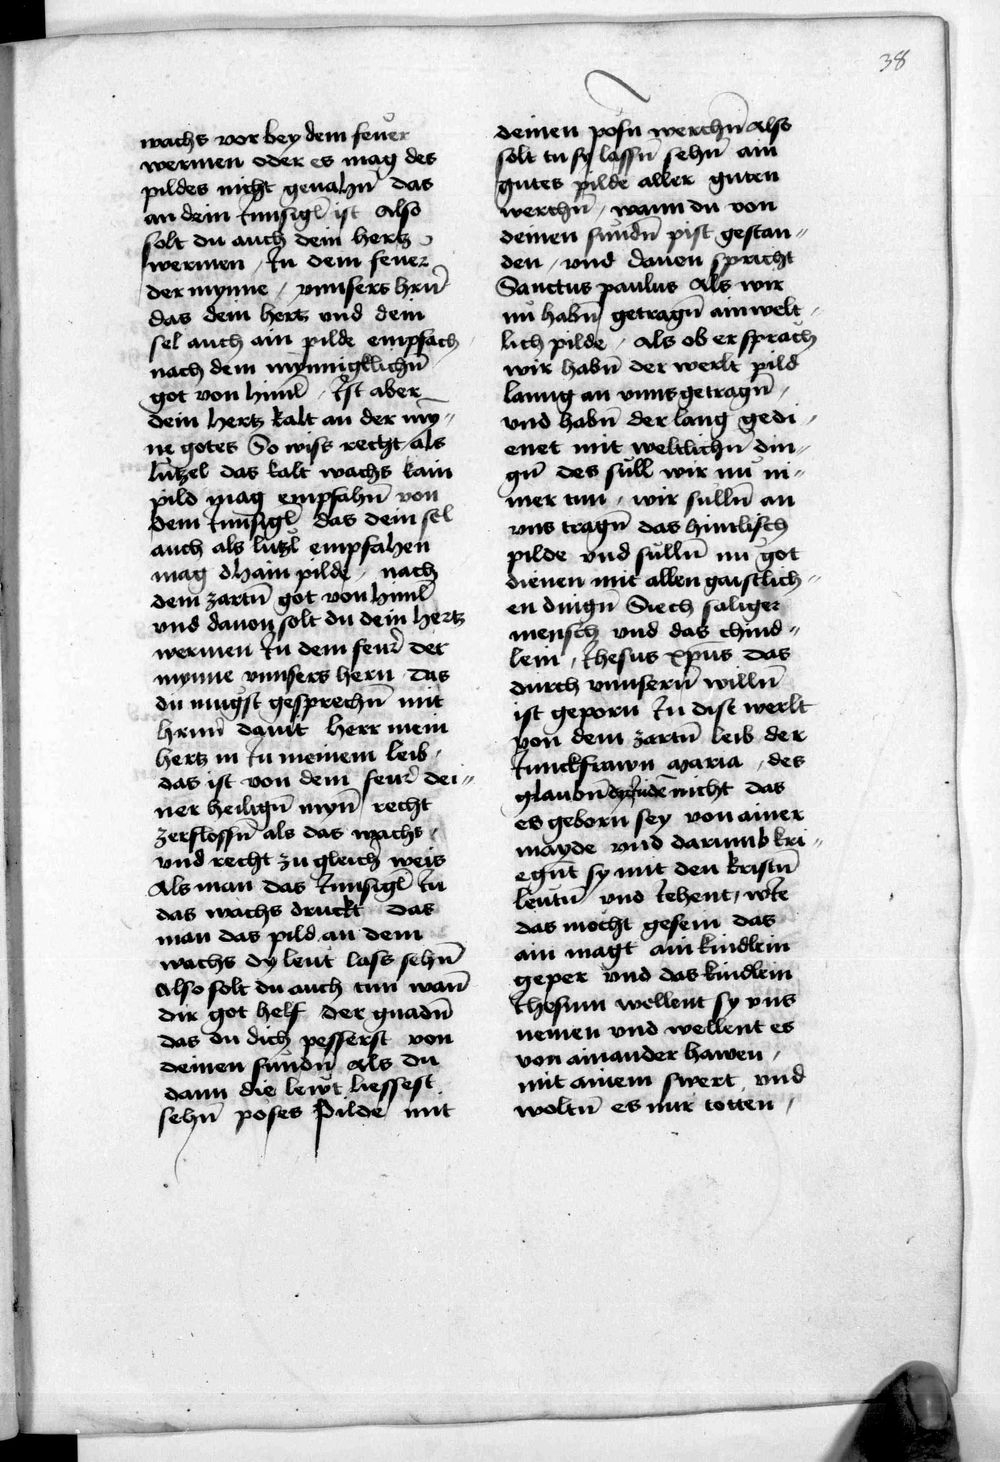 38
wachs vor bey dem feuer
wermen oder es mag des
pildes nicht geuahn̄ das
an dem Innsigl̄ ist Also
solt du auch dein hertz
wermen / In dem feuer
der mynne / vnnsers hrn̄
das dein hertz vnd dein
sel auch ain pilde empfach
nach dem mynnigklichn̄
got von himl̄ / Ist aber
dein hertz kalt an der my̅〃
ne gotes So wiss recht als
lützel das kalt wachs kain
pild mag empfahn̄ von
dem Innsigl̄ das dein sel
auch als lützl empfahen
mag dhain pilde / nach
dem zartn̄ got von himl̄
vnd dauon solt du dein hertz
wermen In dem feur̄ der
mynne vnnsers hern Das
du mugst gesprechn̄ mit
hrnn̄ dauit herr mein
hertz in In meinem leib /
das ist von dem feur̄ dei〃
ner heilign̄ myn̄ recht
zerflossn̄ als das wachs /
vnd recht zu gleich̄ weis
Als man das Innsigl̄ In
das wachs druckt das
man das pild an dem
wachs dy leut lass sehn̄
Also solt du auch tun wan̄
dir got helf der gnadn̄
das du dich pesserst von
deinen sundn̄ Als du
dann die lewt liessest
sehn̄ poses Pilde mit
deinen posn̄ werchn̄ Also
solt tu sy lassn̄ sehn̄ ain
gutes pilde aller guten
werchn̄ / wann du von
deinen sundn̄ pist gestan〃
den / vnd dauon spricht
Sanctus paulus Als wir
nu habn̄ getragn̄ ain welt /
lich pilde / Als ob er sprach
wir habn̄ der werlt pild
lanng an vnns getragn̄ /
vnd habn̄ der lang gedi /
enet mit weltlichn̄ din〃
gn̄ des sull wir nu ni〃
mer tun / wir sulln̄ an
vns tragn̄ das himlisch
pilde vnd sulln̄ nu got
dienen mit allen gaistlich〃
en dingn̄ Siech saliger
mensch vnd das chind〃
lein / Ihesus xpūs das
durch vnnsern̄ willn̄
ist geporn In dise werlt
von dem zartn̄ leib der
Iunckfrawn Maria / des
glaubn̄ nicht das
es geborn sey von ainer
mayde vnd darumb kri〃
egn̄t sy mit den kristn̄
leutn̄ vnd Iehent / wie
das mocht gesein das
ain magt ain kindlein
geper vnd das kindlein
Ihesum wellent sy vns
nemen vnd wellent es
von ainander hawen /
mit ainem swert vnd
woltn̄ es nur totten /